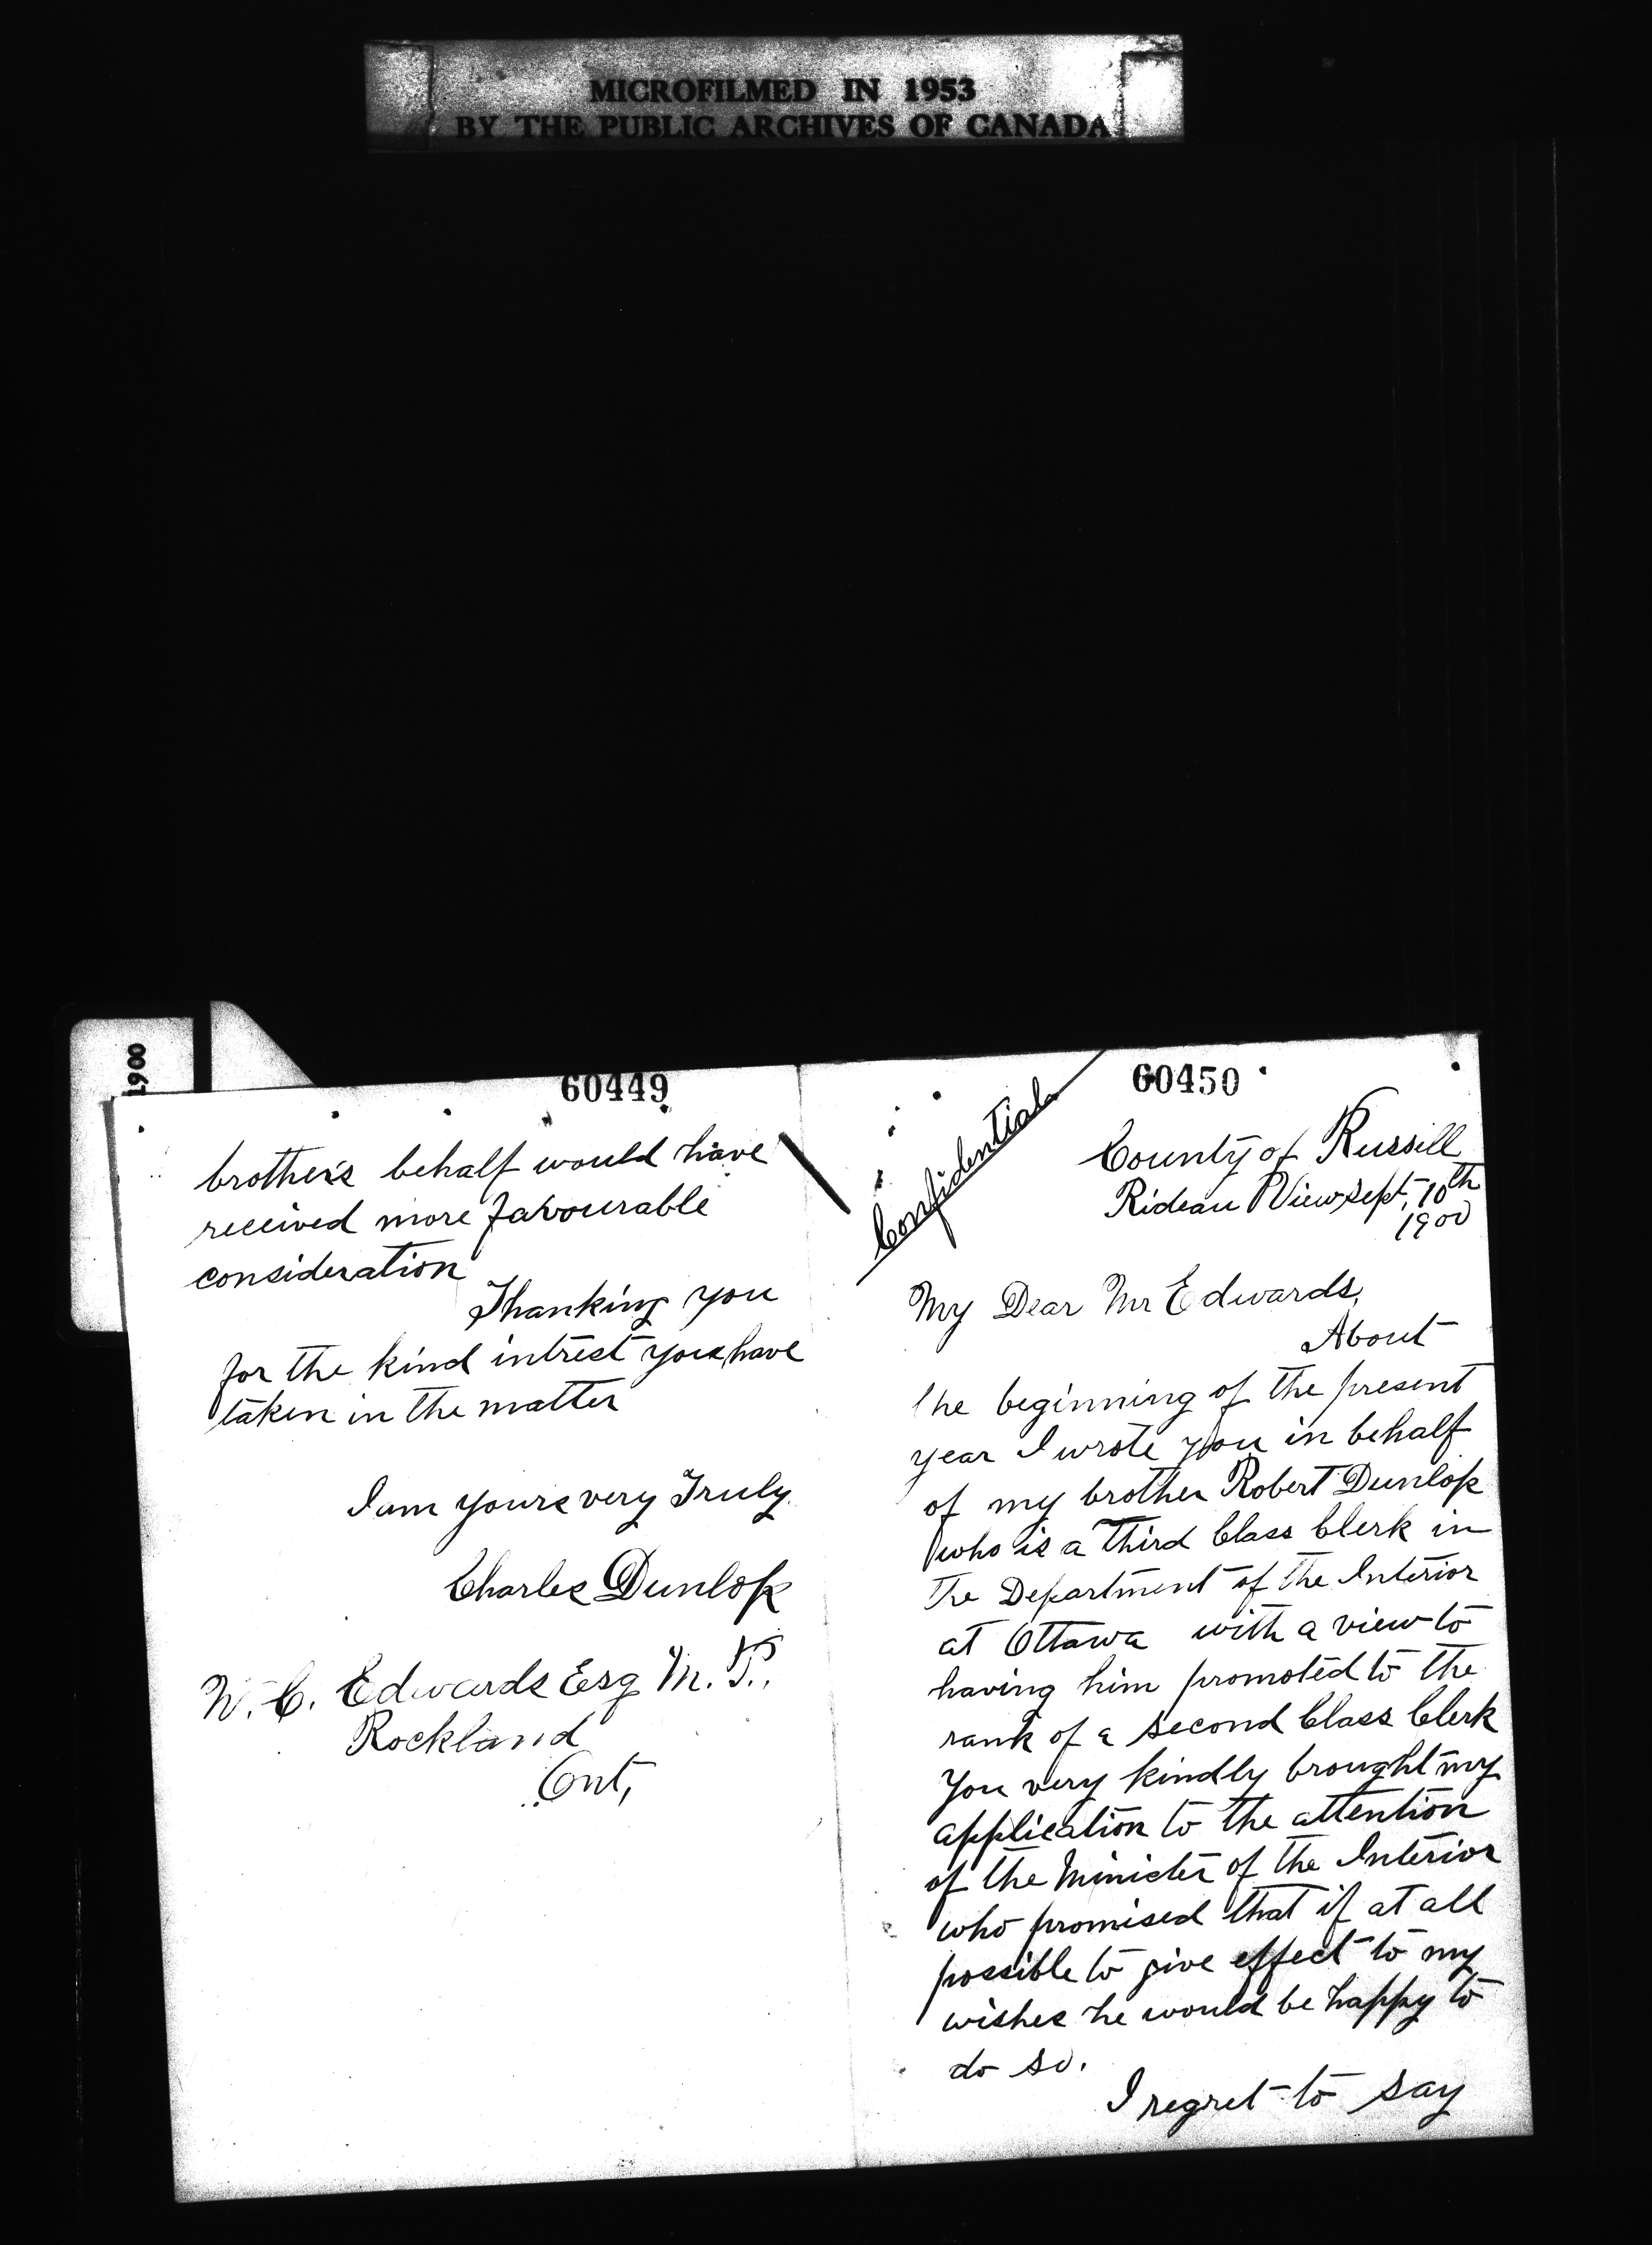 MICROFILMED IN 1953
BY THE PUBLIC ARCHIVES OF CANADA
1900
60449
brother's behalf would have
received more favourable
consideration
Thanking you
for the kind intrest you have
taken in the matter
I am yours very Truly
Charles Dunlop
W. C. Edwards Esq M. P.,
Rockland
Ont,
60450
Confidential
County of Russill
Rideau View Sept, 10th
1900
My Dear Mr Edwards,
About
the beginning of the present
year I wrote you in behalf
of my brother Robert Dunlop
who is a Third Class Clerk in
The Department of the Interior
at Ottawa with a view to
having him promoted to the
rank of a second Class Clerk
You very kindly brought my
application to the attention
of the Minister of the Interior
who promised that if at all
possible to give effect to my
wishes he would be happy to
do so.
I regret to say